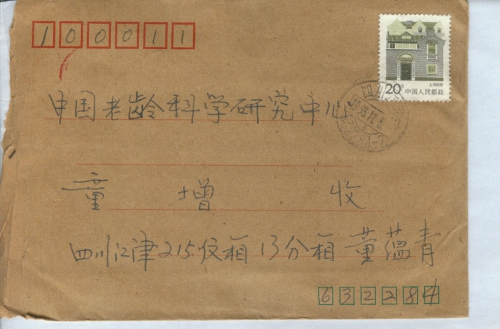 100011
20分
中国人民邮政
中国老龄科学研究中心
童增 收
四川江津215信箱13分箱 董蕴青
632284